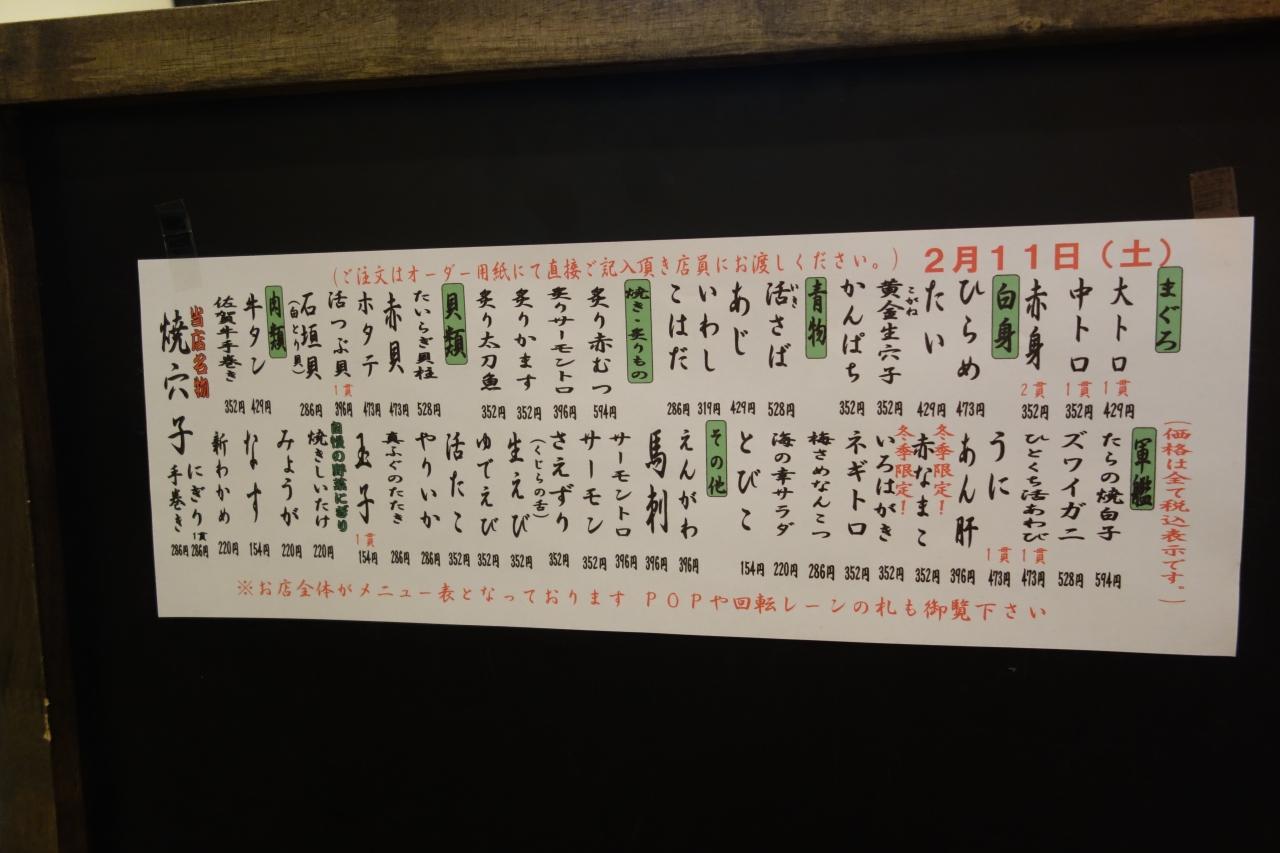 (ご注文はオーダー用紙にて直接ご記入頂き店員にお渡しください。) 2月11日(土)
まぐろ
大トロ 1貫 429円
中トロ 1貫 352円
赤身 2貫 352円
白身
ひらめ 473円
たい 429円
黄金生穴子 こがね 352円
かんぱち 352円
青物
活さば いき 528円
あじ 429円
いわし 319円
こはだ 286円
焼き・炙りもの
炙り赤むつ 594円
炙りサーモントロ 396円
炙りかます 352円
炙り太刀魚 352円
貝類
たいらぎ貝柱 528円
赤貝 473円
ホタテ 473円
活つぶ貝 1貫 396円
石垣貝 (白とり貝) 286円
肉類
牛タン 429円
佐賀牛手巻き 352円
(価格は全て税込表示です。)
軍艦
たらの焼白子 594円
ズワイガニ 528円
ひとくち活あわび 1貫 473円
うに 1貫 473円
あん肝 396円
冬季限定!
赤なまこ 352円
冬季限定!
いろはがき 352円
ネギトロ 352円
梅さめなんこつ 286円
海の幸サラダ 220円
とびこ 154円
その他
えんがわ 396円
馬刺 396円
サーモントロ 396円
サーモン 352円
さえずり (くじらの舌) 352円
生えび 352円
ゆでえび 352円
活たこ 352円
やりいか 286円
真ふぐのたたき 286円
玉子 1貫 154円
自慢の野菜にぎり
焼きしいたけ 220円
みょうが 220円
なす 154円
新わかめ 220円
当店名物
焼穴子
にぎり 1貫 286円
手巻き 286円
※お店全体がメニュー表となっております POPや回転レーンの札も御覧下さい